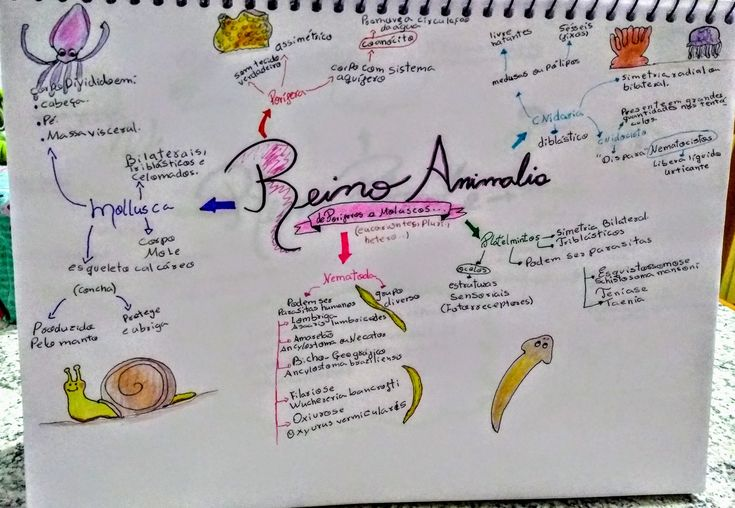 Reino Animalia
de Poríferos a Moluscos...
(eucariontes, Pluri,
hetero...)
Porífera
sem tecido
verdadeiro
assimétrico
corpo com sistema
aquífero
Promove a circulação
da água
coanócito
CNidaria
diblástico
medusas ou Pólipos
livre
natantes
Sésseis
(fixos)
Simetria radial ou
bilateral.
CNidócito
Presente em grandes
quantidades nos tentá
culos.
"Dispara"
Nematocistos
Libera líquido
urticante
Platelmintos
Simetria Bilateral
Triblásticos
Podem ser parasitas
Esquistossomose
Schistosoma mansoni
Teníase
Taenia
ocelos
estruturas
Sensoriais
(Fotorreceptores)
Nematoda
grupo
diverso
Podem ser
Parasitas humanos
Lombriga
Ascaris lumbricoides
Amarelão
Ancylostoma ou Necatos
Bicho-Geográfico
Ancylostoma braziliensis
Filariose
Wuchereria bancrofti
Oxiurose
Oxyurus vermicularis
Mollusca
Bilaterais,
Triblásticos e
Celomados.
Corpo Dividido em:
• cabeça.
• Pé.
• Massa visceral.
Corpo
Mole
esqueleto calcáreo
(concha)
Produzida
Pelo manto
Protege
e abriga